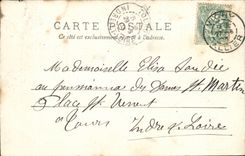 CARTE POSTALE
Ce côté est exclusivement réservé à l'adresse.
ALLIER
Mademoiselle Elisa
au pensionnat des Dames St Martin
Place St Venant
Tours
Indre et Loire